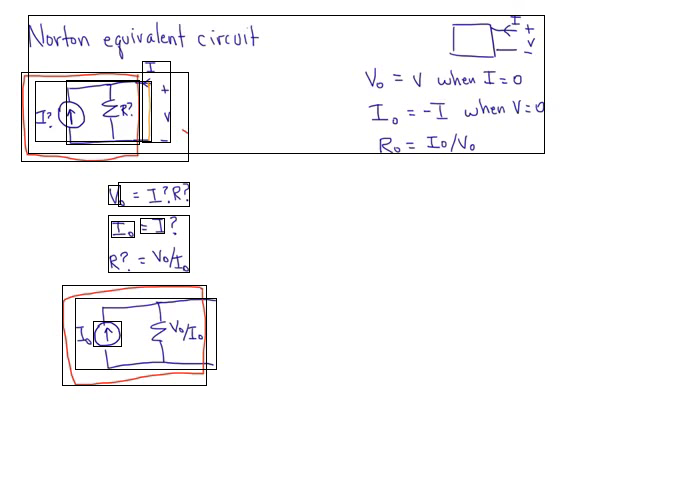 Norton equivalent circuit
I
+
V
-
V₀ = V when I=0
I₀ = -I when V=0
R₀ = I₀/V₀
I
I?
R?
+
V
-
V₀ = I?R?
I₀ = I?
R? = V₀/I₀
I₀
V₀/I₀